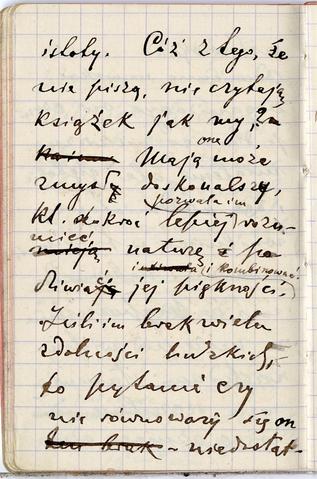 istoty. Cóż z tego, że
nie piszą, nie czytają
książek jak my,
one
Mają może
zmysły doskonalszy,
pozwala im
kt. stokroć lepiej rozu-
mieć
naturę i po
i kombinować
dziwiać jej piękność.
Jeśli im brak wielu
zdolności ludzkich,
to pytanie czy
nie równoważy się on
brak - niedostat-